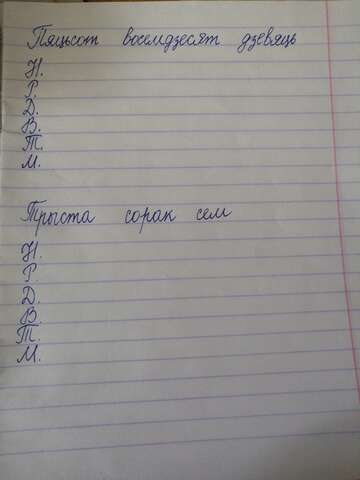 Пяцьсот восемдзесят дзевяць
Н.
Р.
Д.
В.
Т.
М.
Трыста сорак сем
Н.
Р.
Д.
В.
Т.
М.